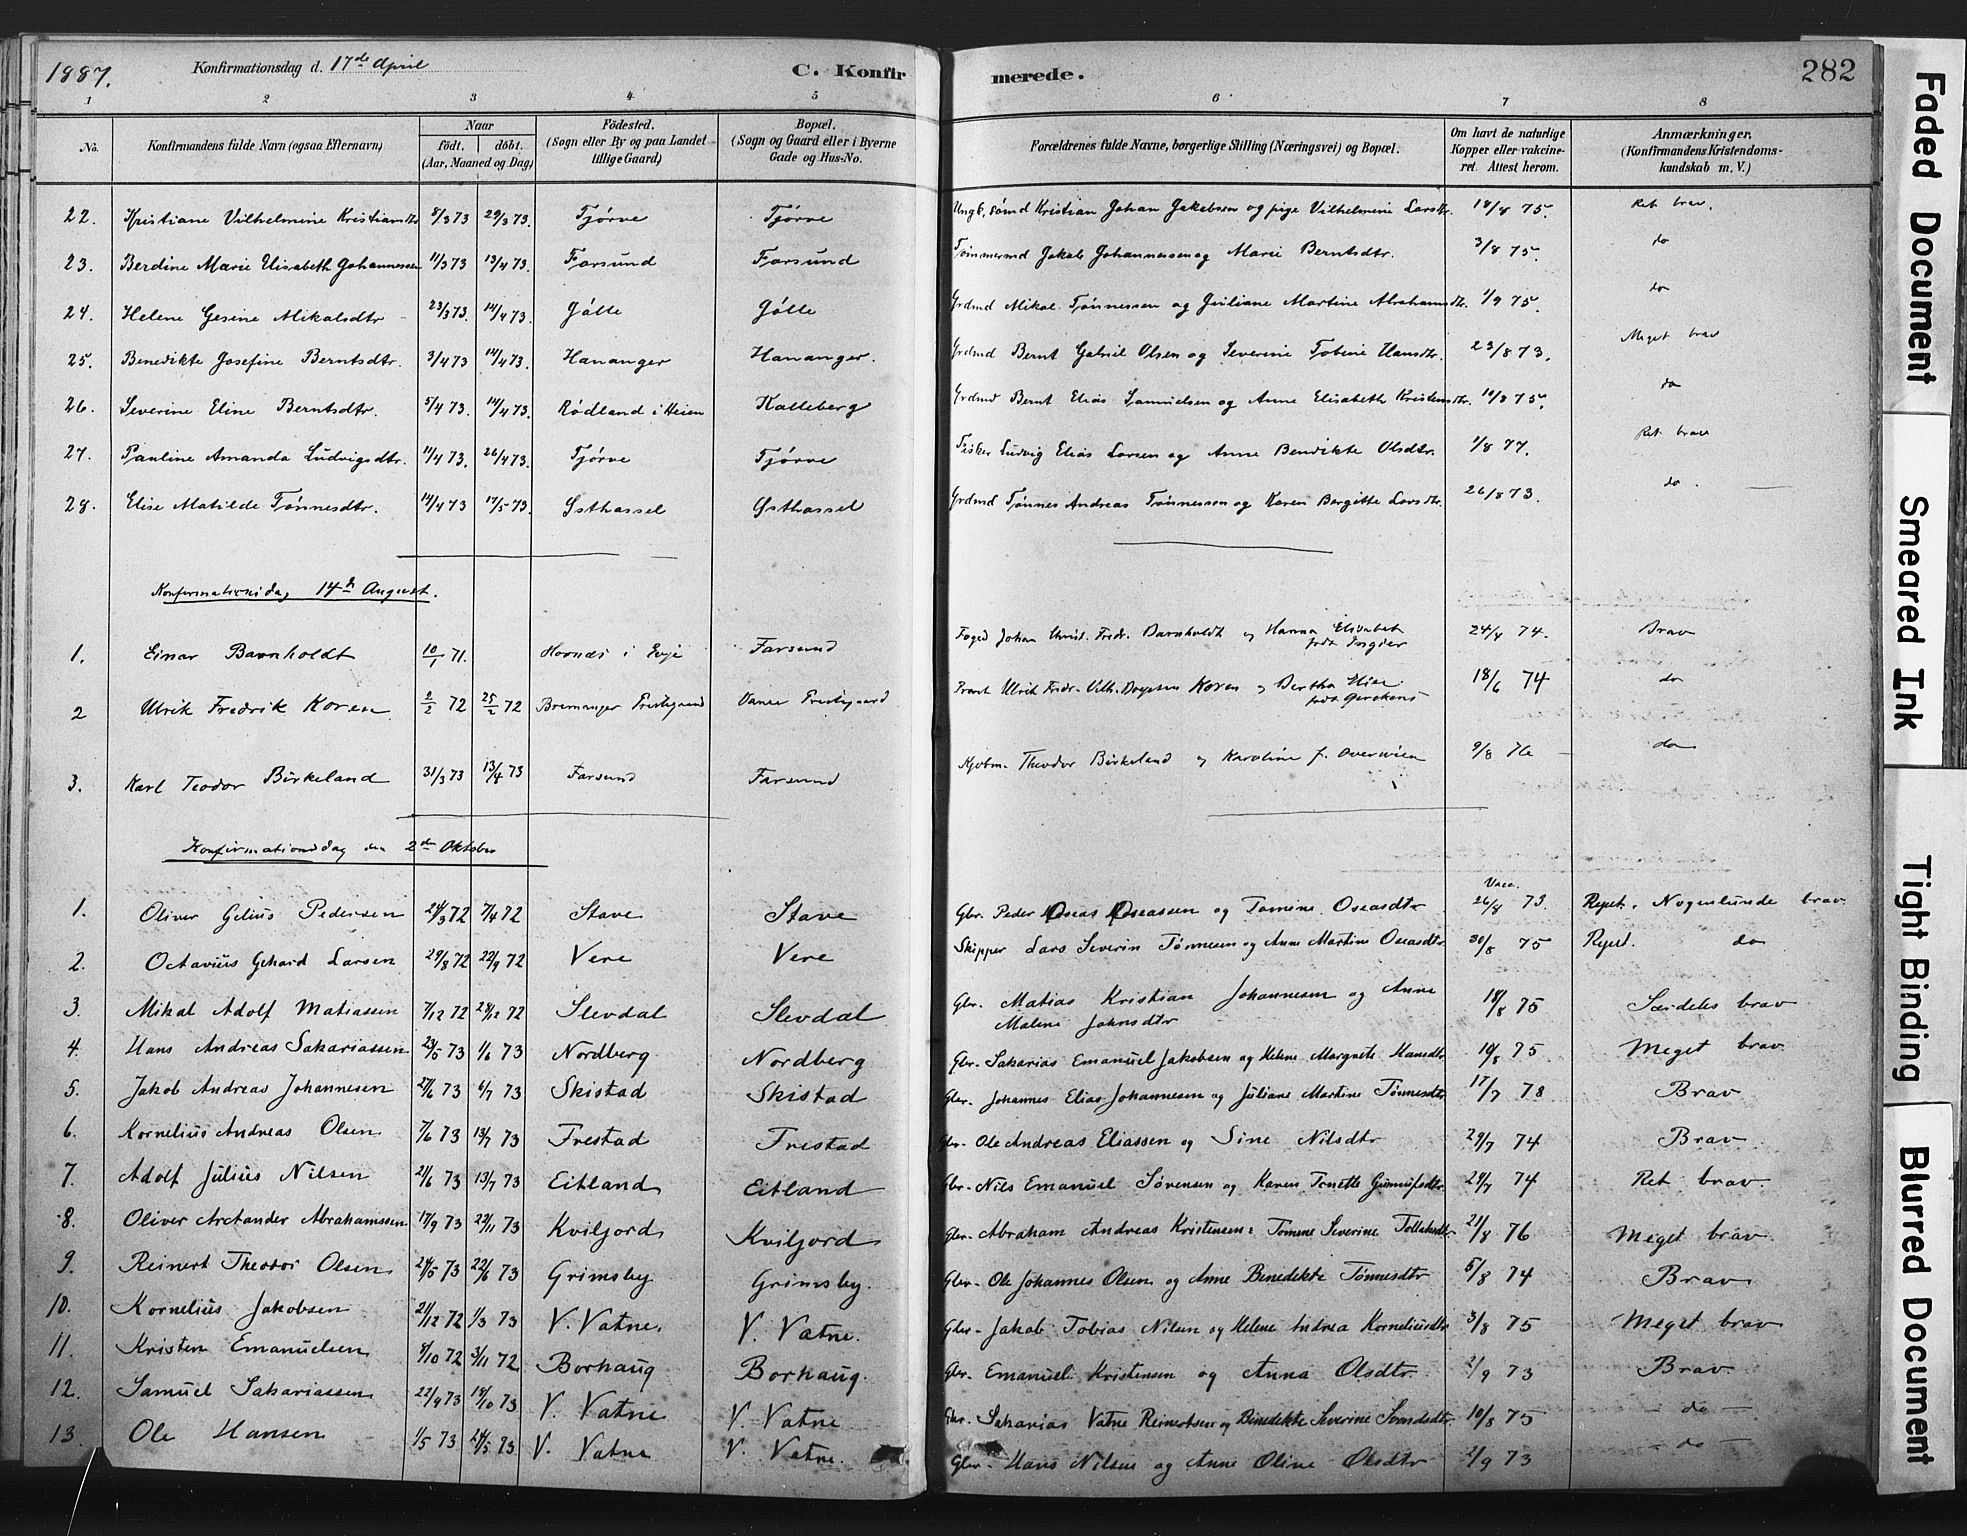 1887. Konfirmationsdag d. 17de April C. Konfirmerede. 282
1 2 3 4 5 6 7 8
No. Konfirmandens fulde Navn (ogsaa Efternavn) Naar födt. döbt. (Aar, Maaned og Dag) Födested. (Sogn eller By og paa Landet tillige Gaard) Bopæl. (Sogn og Gaard eller i Byerne Gade og Hus-No. Forældrenes fulde Navne, borgerlige Stilling (Næringsvei) og Bopæl. Om havt de naturlige Kopper eller vakcineret. Attest herom. Anmærkninger. (Konfirmandens Kristendomskundskab m. V.)
22. Kristiane Vilhelmine Kristiansdtr 8/3 73 29/3 73. Tjørve Tjørve Ungk. sømd Kristian Johan Jakobsen og pige Vilhelmine Larsdtr. 18/8 75. Ret brav.
23. Berdine Marie Elisabeth Johannessen 11/3 73 13/4 73. Farsund Farsund Tømmermd Jakob Johannessen og Marie Berntsdtr. 3/8 75. do
24. Helene Gesine Mikalsdtr 23/3 73. 14/4 73. Jølle Jølle Grdmd Mikal Tønnessen og Juliane Martine Abrahamsdtr. 1/9 75. do
25. Benedikte Josefine Berntsdtr. 3/4 73 14/4 73. Hananger Hananger. Grdmd Bernt Gabriel Olsen og Severine Tobine Hansdtr. 23/8 73. Meget brav
26. Severine Eline Berntsdtr. 5/4 73. 14/4 73. Rødland i Heien Kalleberg Grdmd Bernt Elias Samuelsen og Anne Elisabeth Kristensdtr. 10/8 75. do
27. Pauline Amanda Ludvigsdtr. 11/4 73. 26/4 73. Tjørve Tjørve Fisker Ludvig Elias Larsen og Anne Bendikte Olsdtr. 1/8 77. Ret brav
28. Elise Matilde Tønnesdtr. 14/4 73 17/5 73. Østhassel Østhassel Grdmd Tønnes Andreas Tønnessen og Karen Bergitte Larsdtr. 26/8 73. do.
Konfirmationsdag 14de August.
1. Einar Barnholdt 10/1 71. Hornæs i Evje Farsund Foged Johan Christ. Fredr. Barnholdt og Hanna Elisabet født Ingier 24/4 74. Brav
2 Ulrik Fredrik Koren 2/2 72 25/2 72 Bremanger Prestegaard Vanse Prestegaard Provst Ulrik Fredr. Vilh. Koren og Bertha Elise født 18/6 74 do
3. Karl Teodor Birkeland 31/3 73 13/4 73 Farsund Farsund Kjøbm. Theodor Birkeland og Karoline f. Overwien 9/8 76 do
Konfirmationsdag den 2den Oktober
1. Oliver Gelius Pedersen 24/3 72 7/4 72 Stave Stave Gbr. Peder Oseas Oseassen og Tomine Oseasdtr Vacc. 26/8 73. Repet. Nogenlunde brav.
2. Octavius Gehard Larsen 29/8 72 22/9 72 Vere Vere Skipper Lars Severin Tönnesen og Anne Martine Oseasdtr 30/8 75 Repet. do
3. Mikal Adolf Matiassen 7/12 72 28/12 72 Slevdal Slevdal Gbr. Matias Kristian Johannesen og Anne Malene Jahnsdtr 18/8 75 Særdeles brav
4. Hans Andreas Sakariassen 23/5 73 1/6 73 Nordberg Nordberg Gbr. Sakarias Emanuel Jakobsen og Helene Margrete Hansdtr 10/8 75 Meget brav
5. Jakob Andreas Johannesen 27/6 73 6/7 73 Skistad Skistad Gbr. Johannes Elias Johannesen og Juliane Martine Tønnesdtr 17/7 78 Brav
6. Kornelius Andreas Olsen 7/6 73 13/7 73 Frestad Frestad Gbr. Ole Andreas Eliassen og Sine Nilsdtr 29/7 74 Brav
7. Adolf Julius Nilsen 21/6 73 13/7 73 Eitland Eitland Gbr. Nils Emanuel Sørensen og Karen Tenette Gunnufsdtr. 29/7 74 Ret brav
8. Oliver Arctander Abrahamssen 17/9 73 23/11 73 Kviljord Kviljord Gbr. Abraham Andreas Kristensen : Tomine Severine Tollaksdtr. 21/8 76 Meget brav.
9. Reinert Theodor Olsen 24/5 73 22/6 73 Grimsby Grimsby. Gbr. Ole Johannes Olsen og Anne Benedikte Tönnesdtr 5/8 74 Brav
10. Kornelius Jakobsen 21/12 72 1/3 73 V. Vatne. V. Vatne. Gbr. Jakob Tobias Nilsen og Helene Andrea Korneliusdtr 3/8 75 Meget brav
11. Kristen Emanuelsen 8/10 72 3/11 72 Borhaug Borhaug. Gbr. Emanuel Kristensen og Anna Olsdtr. 2/9 73 Brav
12. Samuel Sakariassen 22/9 73 18/10 73 V. Vatne V. Vatne Gbr. Sakarias Vatne Reinertsen og Benedikte Severine Svendsdtr. 10/8 75 – do –
13. Ole Hansen 1/5 73 24/5 73 V. Vatne V. Vatne. Gbr. Hans Nilsen og Anne Oline Olsdtr 2/9 73 – do –
Faded Document
Smeared Ink
Tight Binding
Blurred Document